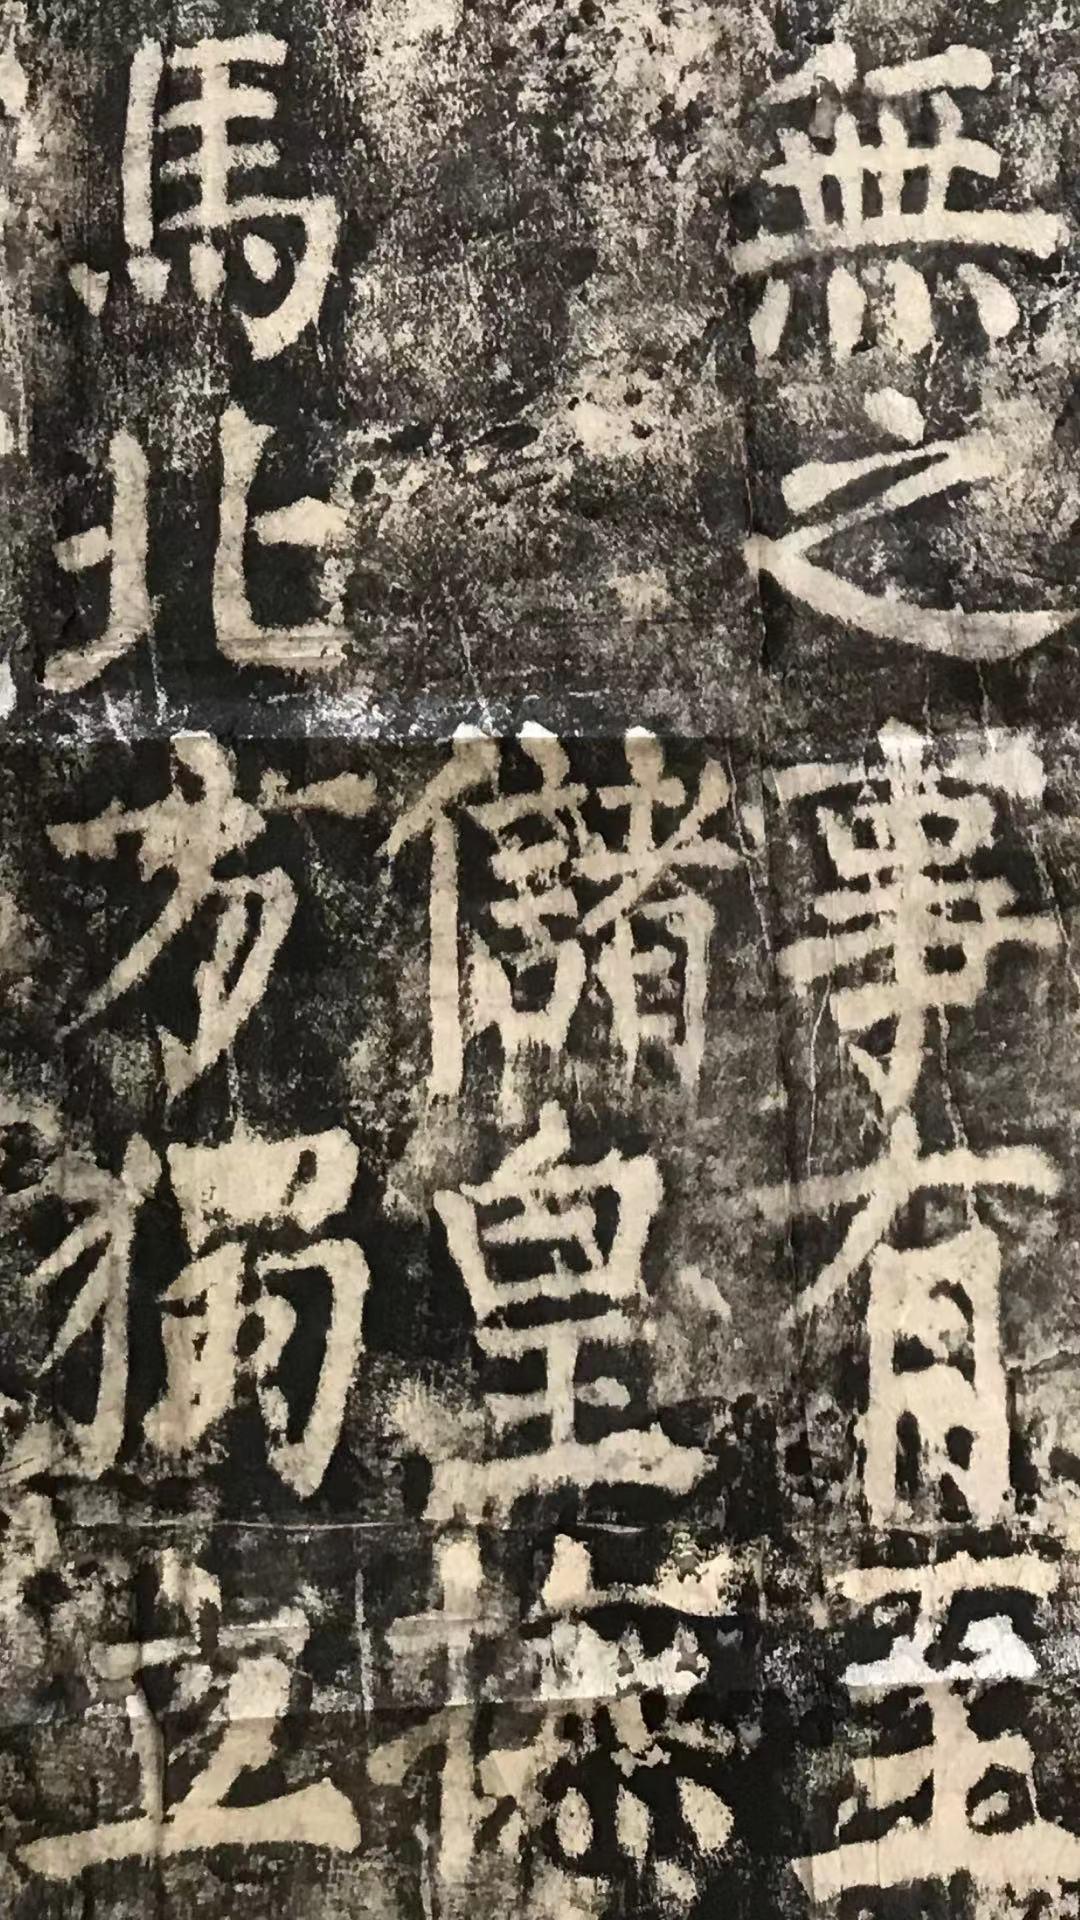 無之事有至
儲皇撫
馬北方獨立